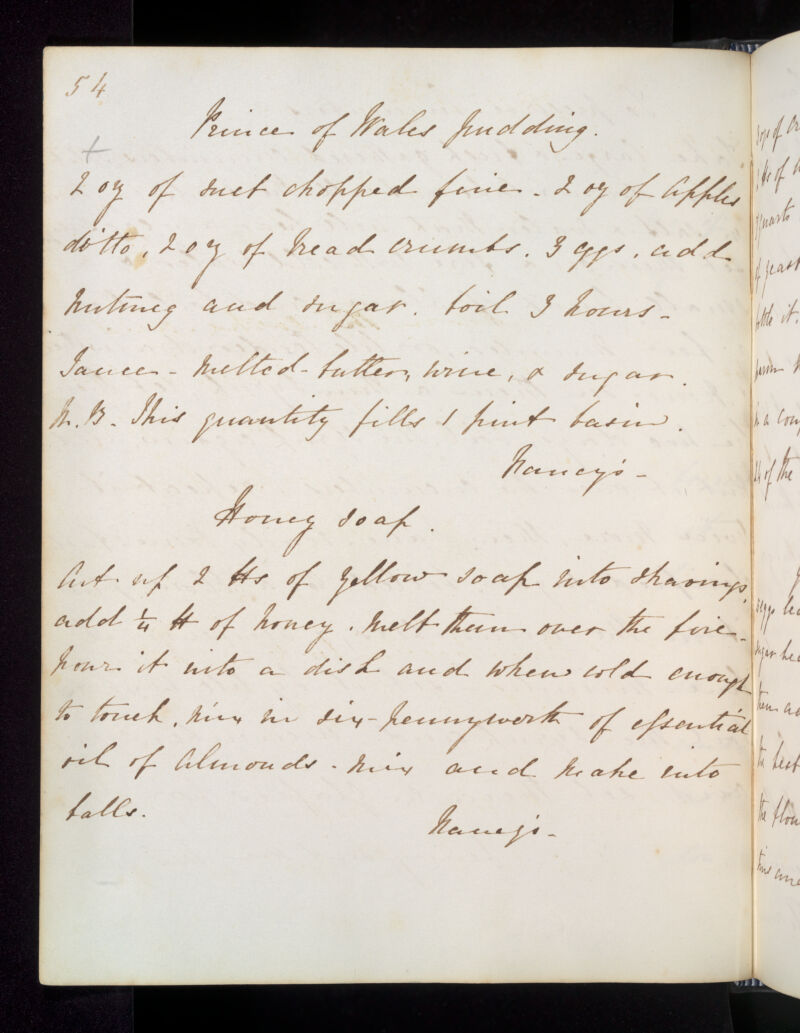 54
Prince of Wales pudding.
+
2 oz of suet chopped fine - 2 oz of Apples
ditto, 2 oz of bread crumbs. 3 eggs, add
nutmeg and sugar. boil 3 hours -
Sauce - melted - butter, wine, & sugar.
N. B. This quantity fills 1 pint basin.
Nancy's -
Honey soap.
Cut up 2 lbs of yellow soap into shavings,
add 1/4 lb of honey. melt them over the fire -
pour it into a dish and when cold enough
to touch, mix in six-pennyworth of essential
oil of Almonds - mix and make into
balls.
Nancy's -
of the